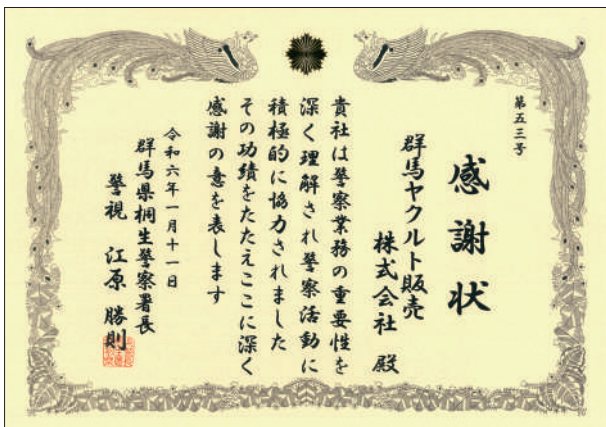 第五三号
感謝状
群馬ヤクルト販売
株式会社 殿
貴社は警察業務の重要性を
深く理解され警察活動に
積極的に協力されました
その功績をたたえここに深く
感謝の意を表します
令和六年一月十一日
群馬県桐生警察署長
警視 江原勝則